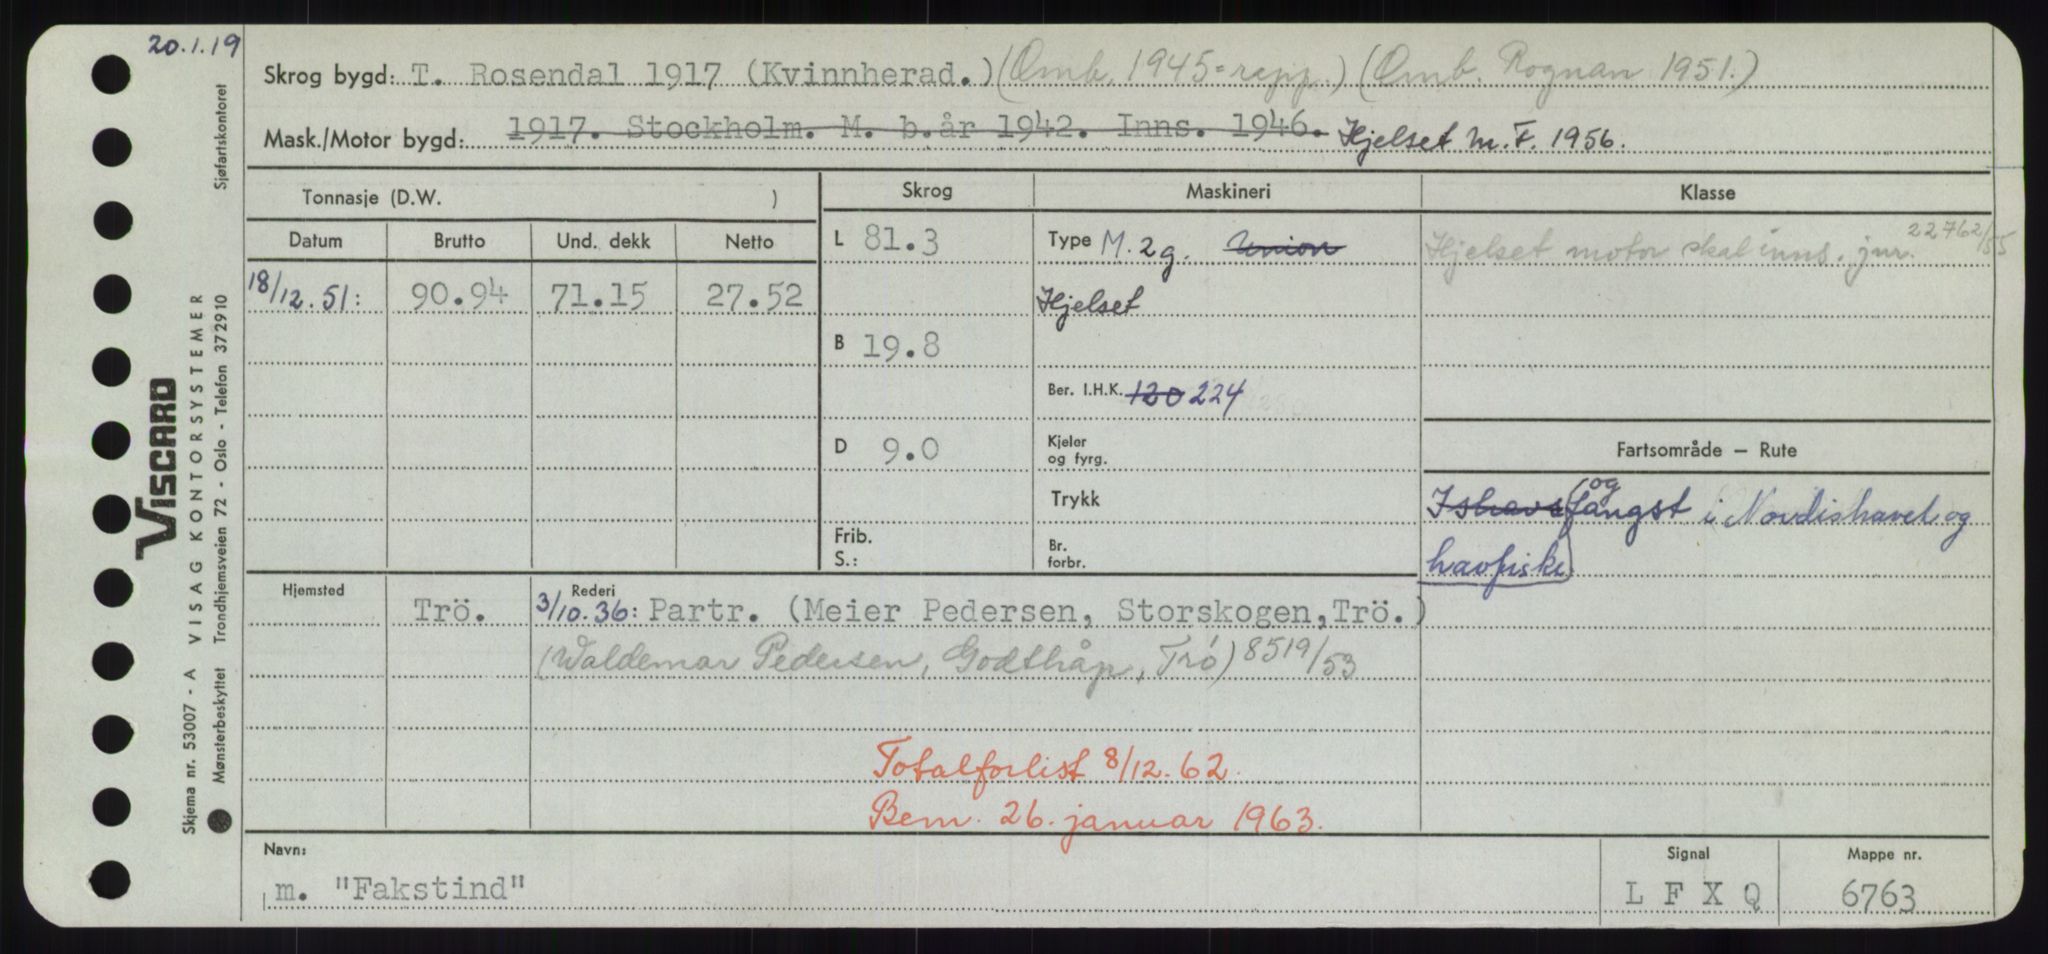 20.1.19
Skrog bygd: T. Rosendal 1917 (Kvinnherad.) (Omb. 1945=repp.) (Omb. Rognan 1951.)
Mask./Motor bygd: 1917. Stockholm. M. b.år 1942. Inns. 1946. Hjelset M.F. 1956.
Tonnasje (D.W. ) Skrog Maskineri Klasse
Datum Brutto Und. dekk Netto L 81.3 Type M. 2g. Union Hjelset motor skal inns. jnr. 22762/55
18/12.51: 90.94 71.15 27.52 Hjelset
B 19.8
Ber. I.H.K. 120 224
D 9.0 Kjeler
og fyrg.
Fartsområde – Rute
Trykk
Ishavs og fangst i Nordishavet og
havfiske
Frib.
S.:
Br.
forbr.
Hjemsted Rederi
Trö. 3/10.36: Partr. (Meier Pedersen, Storskogen,Trö.)
(Waldemar Pedersen, Godthåp, Trö) 8519/53
Totalforlist 8/12.62.
Bem. 26. januar 1963.
Navn: Signal Mappe nr.
m. "Fakstind" L F X Q 6763
VISCARD
Skjema nr. 53007 - A VISAG KONTORSYSTEMER
Mønsterbeskyttet Trondhjemsveien 72 - Oslo - Telefon 37 29 10 Sjøfartskontoret